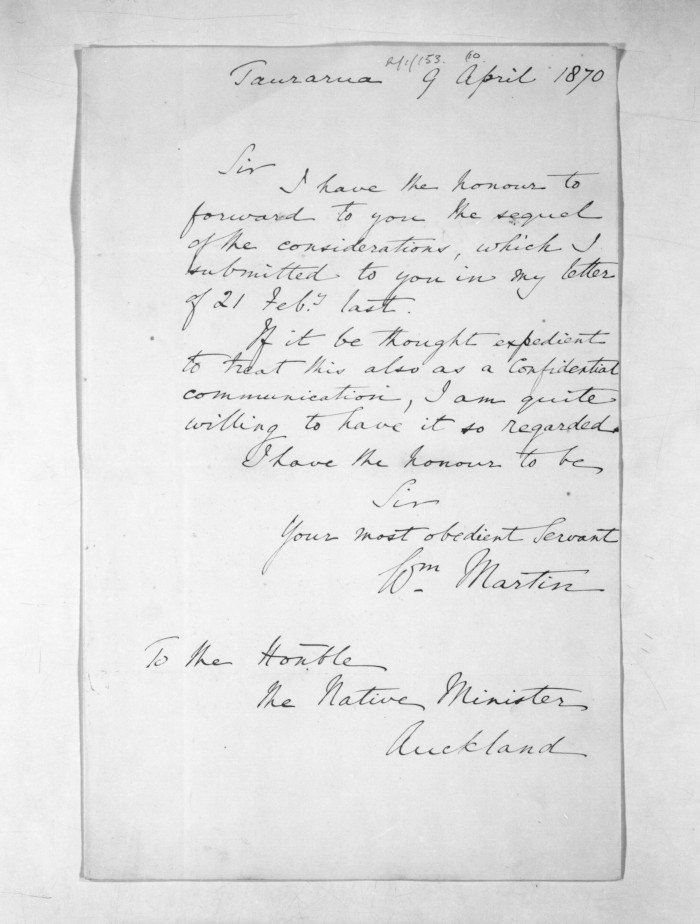 2/1/153.
Taurarua 9 April 1870
Sir
I have the honour to
forward to you the sequel
of the considerations, which I
submitted to you in my letter
of 21 Feb.y last.
If it be thought expedient
to treat this also as a Confidential
communication, I am quite
willing to have it so regarded.
I have the honour to be
Sir
Your most obedient Servant
Wm Martin
To the Honble
the Native Minister
Auckland